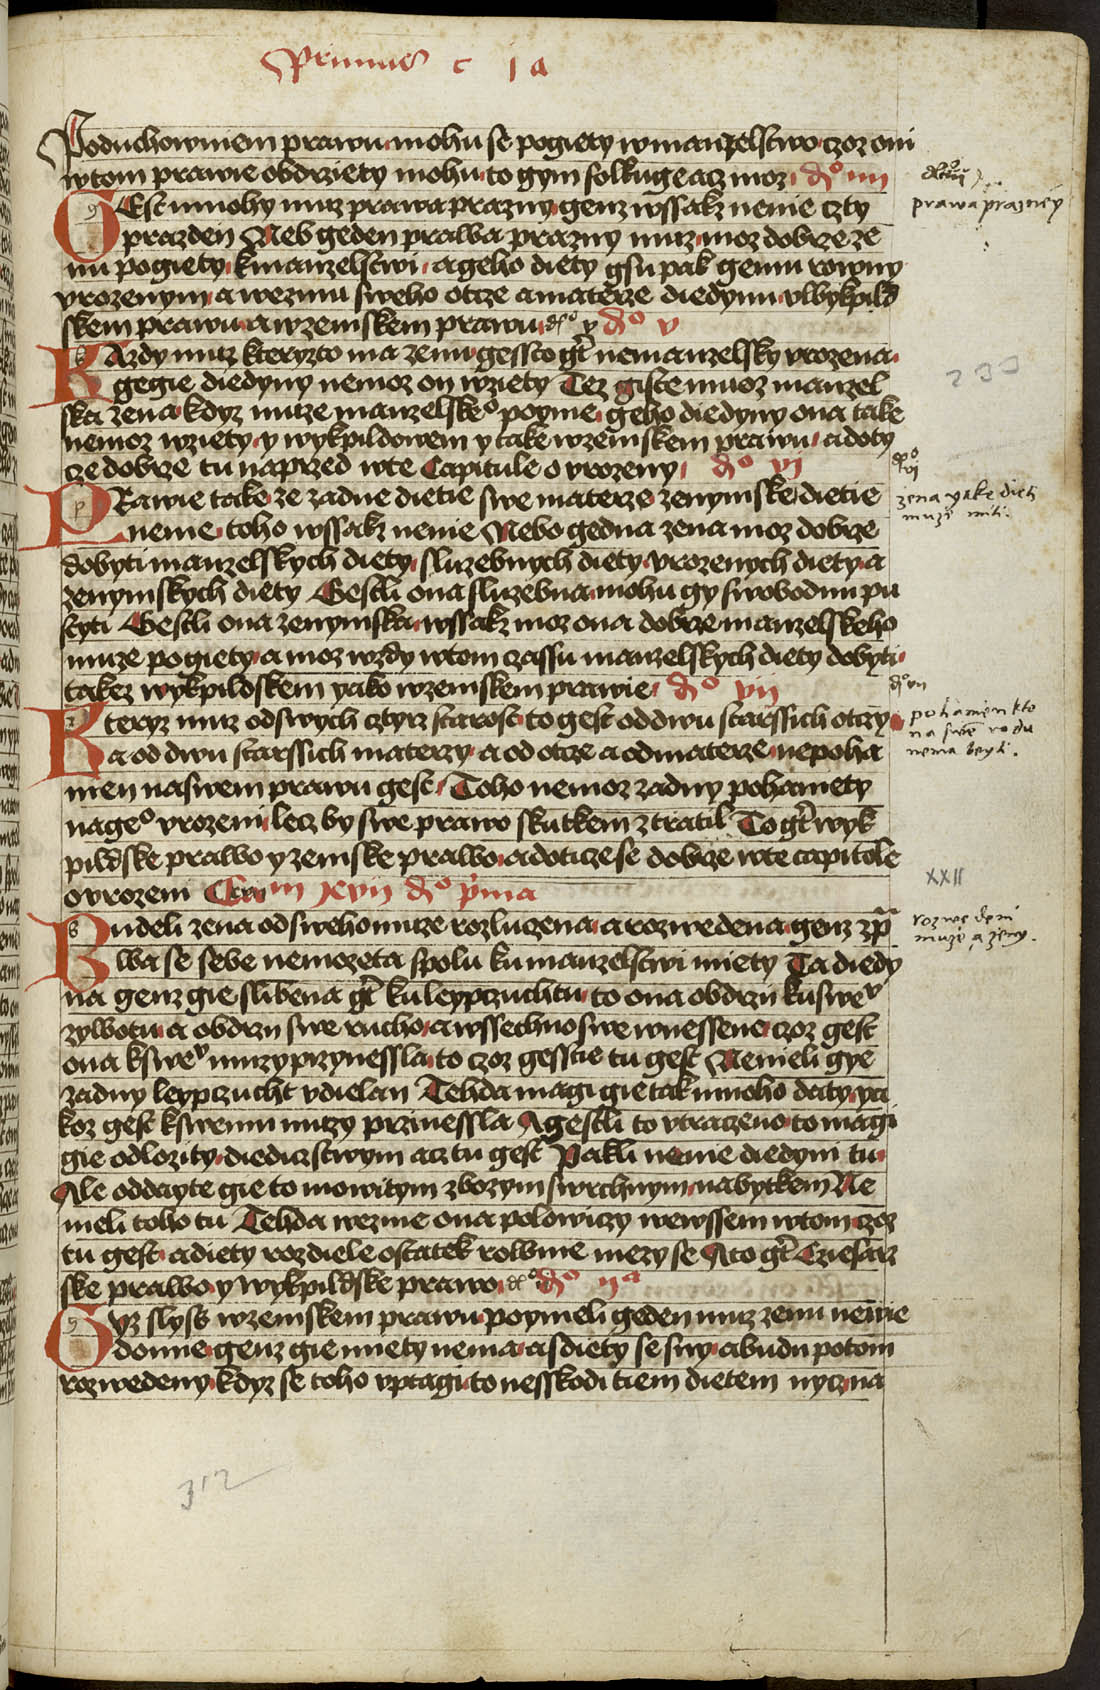 Primus c 1 a
Poduchowniem prawu mohu se pogiety wmanzelstwo czoz oni
wtom prawie obdrziety mohu to gym folkuge acz moz dº iiii
GEst mnohy muz prawa prazny genz wssak nenie czty
prazden Neb geden prawa prazny muz moz dobrze ze
nu pogiety kmanzelstwi a geho diety gsu pak gemu rowny
vrozenym a wezmu sweho otcze a materze diedynu vwykpild
skem prawu a wzemskem prawu dº v dº v
KAzdy muz kteryzto ma zenu gessto gt nemanzelsky vrozena
gegie diedyny nemoz on wziety Tez giste muoz manzel
ska zena kdyz muze manzelskeº poyme geho diedyny ona take
nemoz wziety y wykpildowem y take wzemskem prawu a doty
cze dobrze tu naprzed wte Capitule o vrozeny dº vi
PRawie take ze zadne dietie swe materze zenymske dietie
nenie toho wssak nenie Nebo gedna zena moz dobrze
dobyti manzelskych diety sluzebnych diety vrozenych diety a
zenymskych diety Gestli ona sluzebna mohu gy swobodnu pu
styti Gestli ona zenymska wssak moz ona dobrze manzelskeho
muze pogiety a moz wzdy wtom czassu manzelskych diety dobyti
takez wykpildskem yako wzemskem prawie dº vii
Kteryz muz odswych cztyrz starost to gest oddwu starssich otczy
a od dwu starssich materzy a od otcze a odmaterze nepoha
nien naswem prawu gest Toho nemoz zadny pohaniety
nageº vrozeni lecz by swe prawo skutkem ztratil To gt wyk
pildske prawo y zemske prawo a doticze se dobrze wte capitole
o vrozeni Cca iii xvii dº pma
Budeli zena odswehomuze rozluczena a rozwedena genz zp
wa se sebe nemozeta spolu ku manzelstwi miety Ta diedy
na genz gie slibena gt kuleypczuchtu to ona obdrzu kuswe
zywotu a obdrzu swe rucho a wssechno swe wnessene czoz gest
ona kswe muzy przynessla to czoz gesscie tu gest Nemeli gye
zadny leypczucht vdielan Tehda magi gie tak mnoho daty ya
koz gest kswemu muzy przinessla A gestli to vtraczeno to magi
gie odlozity diedicztwym acz tu gest Pakli nenie diedyni tu
Ale oddayte gie to mowitym zbozym swrchnym nabytkem Ne
meli toho tu Tehda wezme ona polowiczy wewssem wtom czoz
tu gest a diety rozdiele ostatek rowne mezy se A to gt Cziesarz
ske prawo y wykpildske prawo dº dº iiª
Gyz slyss wzemskem prawu poymeli geden muz zenu newie
domne genz gie miety nema a sdiety se smy a budu potom
rozwedeny kdyz se toho vptagi to nesskodi tiem dietem nycz na
prawa prazney
dº vi
zena yake dieti
muze miti.
dº vii
pohanien kto
na swe rodu
nema beyti.
XXII
rozwedeni
muze a zeny.
312